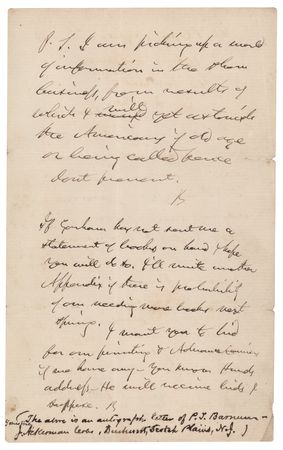 P.S. I am picking up a world
of information in the show
business, from results of
which I will yet astonish
the Americans if old age
or being called hence
dont prevent.
B
If Gorham has not sent me a
statement of books on hand I hope
you will do so. I'll write another
Appendix if there is probability
of our needing more books next
Spring. I want you to bid
for our printing &
if we home any – You know
address – He will receive bids I
suppose. B
(The above is an autograph letter of P.T. Barnum –
Ackerman Coles, Scotch Plains, N.J. )